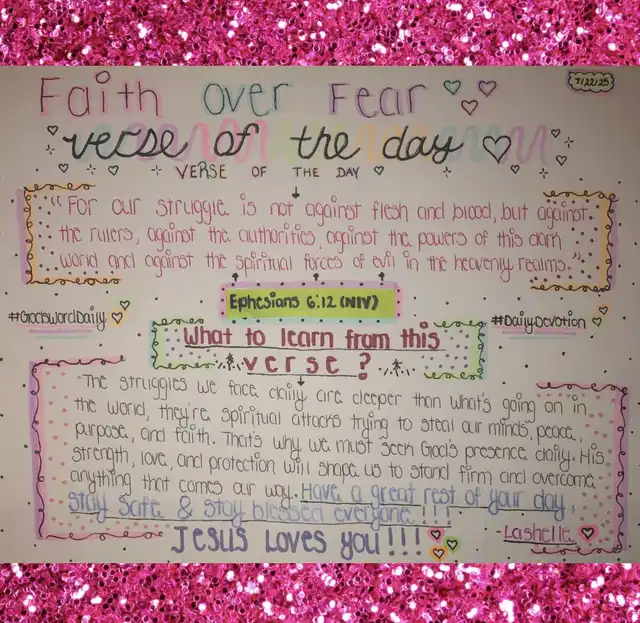 Faith over Fear
7/22/25
verse of the day
VERSE OF THE DAY
"For our struggle is not against flesh and blood, but against
the rulers, against the authorities, against the powers of this dark
world and against the spiritual forces of evil in the heavenly realms."
Ephesians 6:12 (NIV)
#GodswordDaily
#DailyDevotion
What to learn from this
verse?
The struggles we face daily are deeper than what's going on in
the world, they're spiritual attacks trying to steal our minds, peace,
purpose, and faith. That's why we must seek God's presence daily. His
strength, love, and protection will shape us to stand firm and overcome
anything that comes our way. Have a great rest of your day,
stay safe & stay blessed everyone!!!
-Lashelle
Jesus Loves you!!!